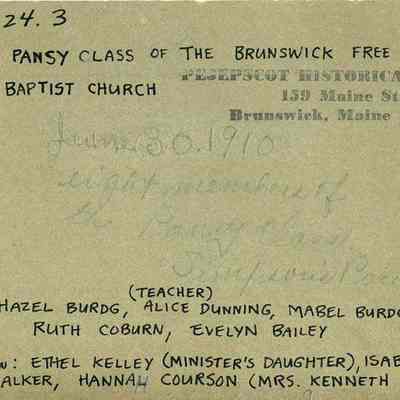 24.3
PANSY CLASS OF THE BRUNSWICK FREE
BAPTIST CHURCH
PEJEPSCOT HISTORICA
159 Maine St
Brunswick, Maine
June 30. 1910
eight members of
the Pansy Class
Simpson's
(TEACHER)
HAZEL BURDG, ALICE DUNNING, MABEL BURDG
RUTH COBURN, EVELYN BAILEY
: ETHEL KELLEY (MINISTER'S DAUGHTER), ISAB
ALKER, HANNAH COURSON (MRS. KENNETH